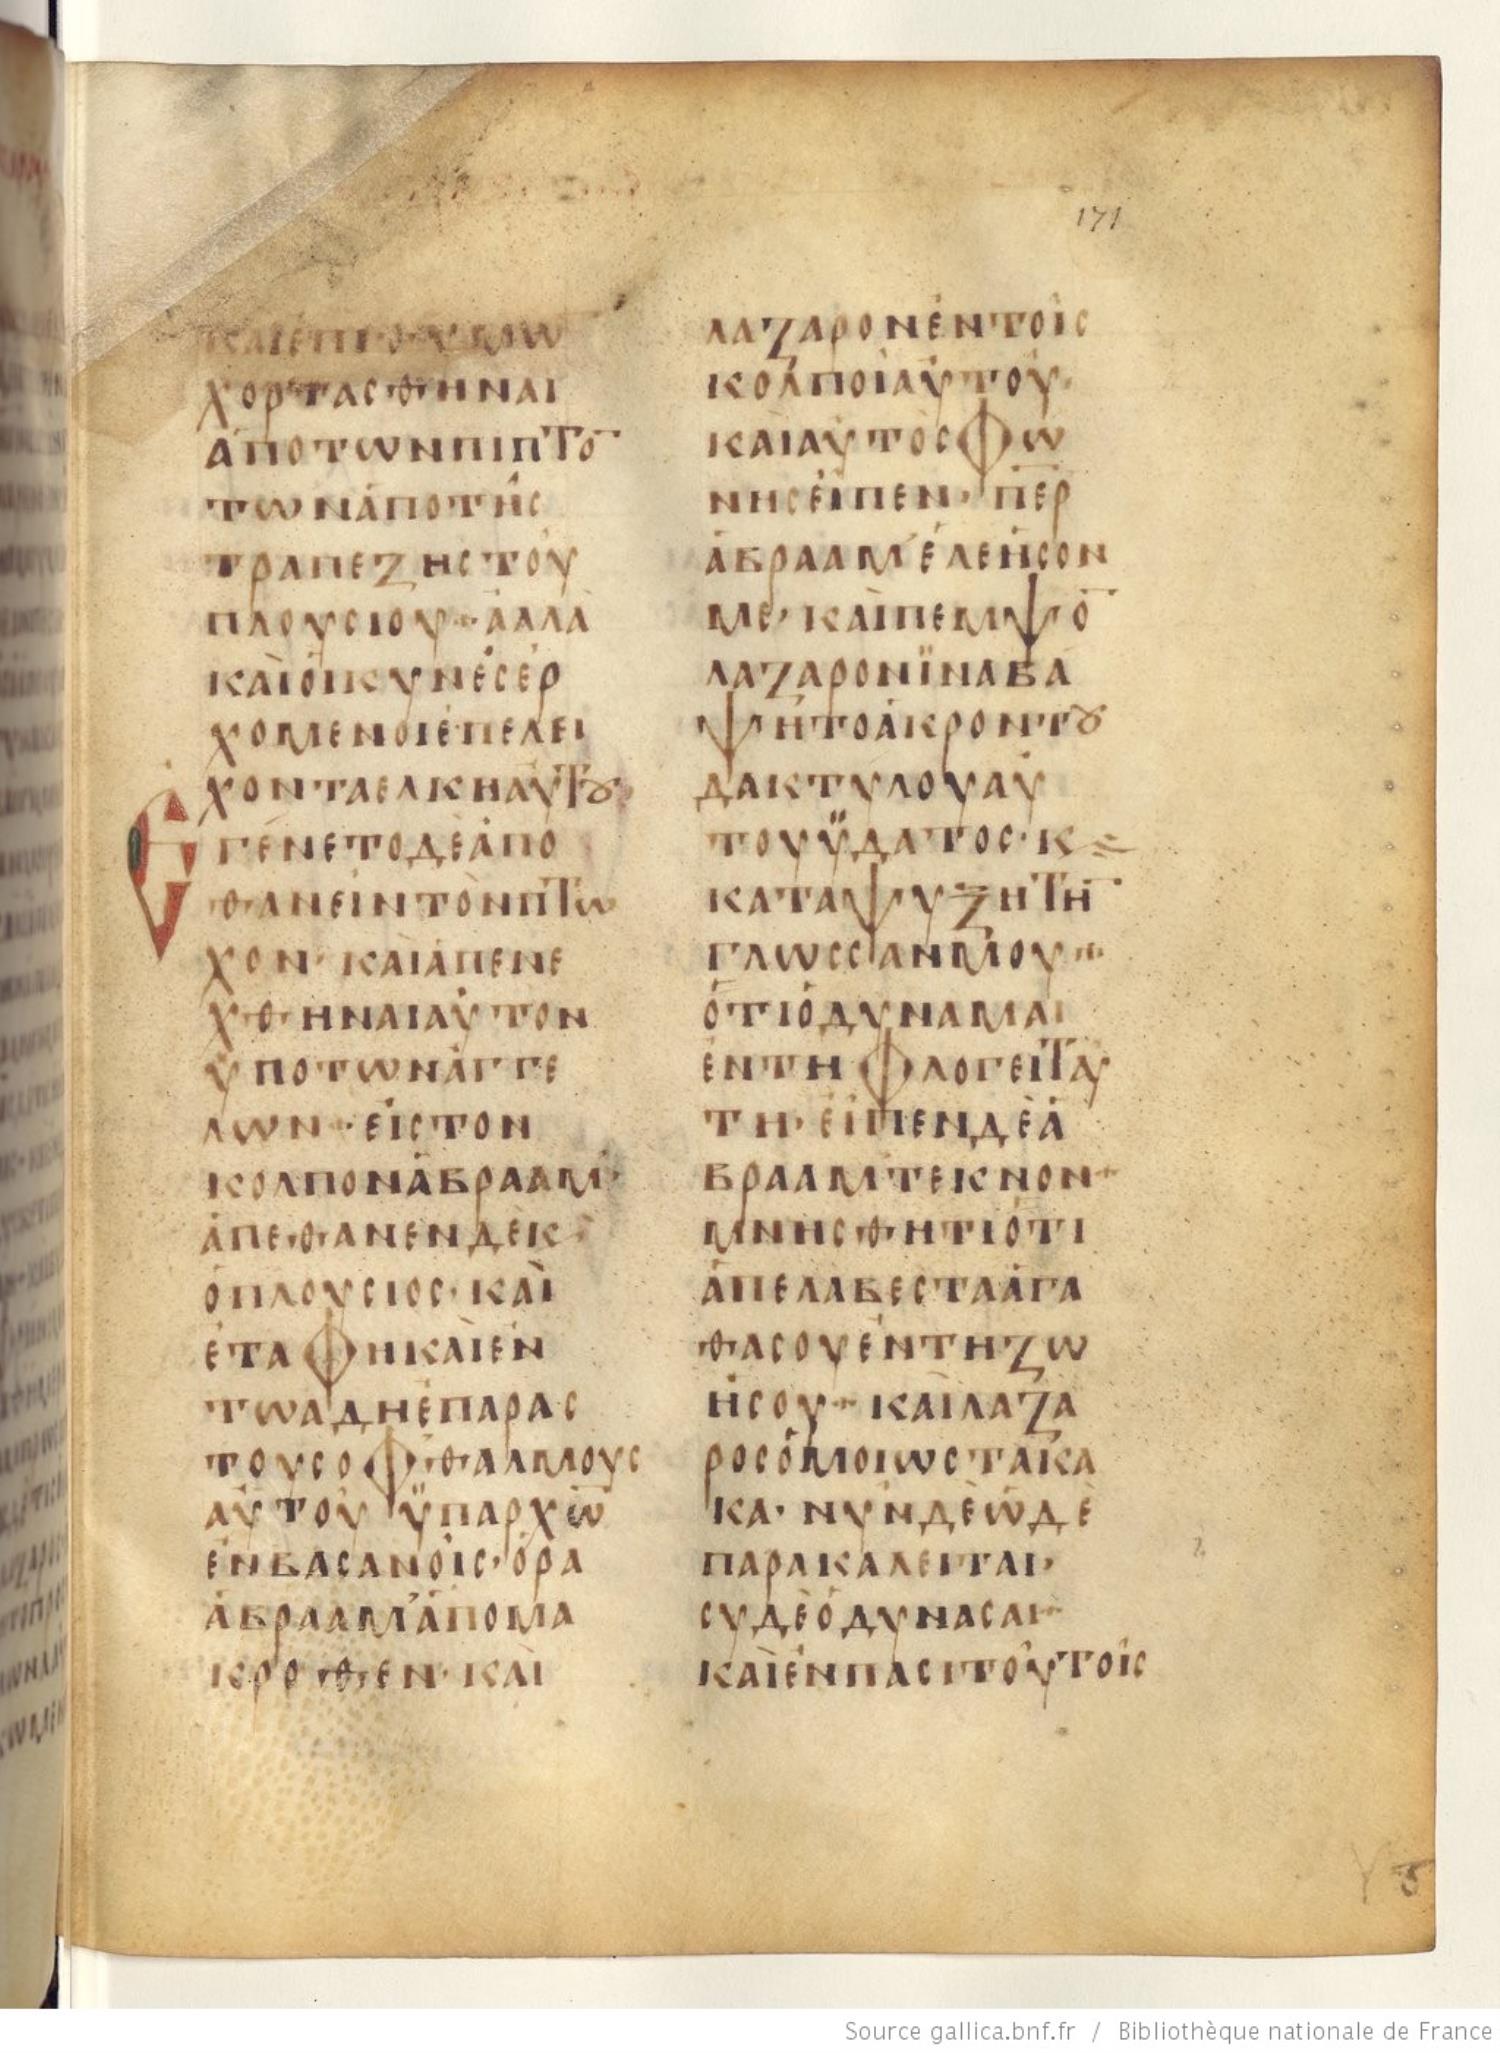 171
ΚΑΙ ΕΠΙΘΥΜΩ
ΧΟΡΤΑΣΘΗΝΑΙ
ΑΠΟ ΤΩΝ ΠΙΠΤΟ̅
ΤΩΝ ΑΠΟ ΤΗΣ
ΤΡΑΠΕΖΗΣ ΤΟΥ
ΠΛΟΥΣΙΟΥ· ΑΛΛΑ
ΚΑΙ ΟΙ ΚΥΝΕΣ ΕΡ
ΧΟΜΕΝΟΙ ΕΠΕΛΕΙ
ΧΟΝ ΤΑ ΕΛΚΗ ΑΥΤȢ·
ΕΓΕΝΕΤΟ ΔΕ ΑΠΟ
ΘΑΝΕΙΝ ΤΟΝ ΠΤΩ
ΧΟΝ· ΚΑΙ ΑΠΕΝΕ
ΧΘΗΝΑΙ ΑΥΤΟΝ
ΥΠΟ ΤΩΝ ΑΓΓΕ
ΛΩΝ· ΕΙΣ ΤΟΝ
ΚΟΛΠΟΝ ΑΒΡΑΑΜ·
ΑΠΕΘΑΝΕΝ ΔΕ Κ
Ο ΠΛΟΥΣΙΟΣ· ΚΑΙ
ΕΤΑΦΗ ΚΑΙ ΕΝ
ΤΩ ΑΔΗ ΕΠΑΡΑΣ
ΤΟΥΣ ΟΦΘΑΛΜΟΥΣ
ΑΥΤΟΥ ΫΠΑΡΧΩ̅
ΕΝ ΒΑΣΑΝΟΙΣ· ΟΡΑ
ΑΒΡΑΑΜ ΑΠΟ ΜΑ
ΚΡΟΘΕΝ· ΚΑΙ
ΛΑΖΑΡΟΝ ΕΝ ΤΟΙΣ
ΚΟΛΠΟΙΑΥΤΟΥ·
ΚΑΙ ΑΥΤΟΣ ΦΩ
ΝΗΣ ΕΙΠΕΝ· Π̅Ε̅Ρ
ΑΒΡΑΑΜ ΕΛΕΗΣΟΝ
ΜΕ· ΚΑΙ ΠΕΜΨΟ̅
ΛΑΖΑΡΟΝ ΪΝΑ ΒΑ
ΨΗ ΤΟ ΑΚΡΟΝ ΤȢ
ΔΑΚΤΥΛΟΥ ΑΥ
ΤΟΥ ΫΔΑΤΟΣ· Κ
ΚΑΤΑΨΥΖΗ ΤΗ̅
ΓΛΩΣΣΑΝ ΜΟΥ·
ΟΤΙ ΟΔΥΝΑΜΑΙ
ΕΝ ΤΗ ΦΛΟΓΕΙ ΤΑΥ
ΤΗ· ΕΙΠΕΝ ΔΕ Α
ΒΡΑΑΜ ΤΕΚΝΟΝ·
ΜΝΗΣΘΗΤΙ ΟΤΙ
ΑΠΕΛΑΒΕΣ ΤΑ ΑΓΑ
ΘΑ ΣΟΥ ΕΝ ΤΗ ΖΩ
Η ΣΟΥ· ΚΑΙ ΛΑΖΑ
ΡΟΣ ΟΜΟΙΩΣ ΤΑ ΚΑ
ΚΑ· ΝΥΝ ΔΕ ΩΔΕ
ΠΑΡΑΚΑΛΕΙΤΑΙ·
ΣΥ ΔΕ ΟΔΥΝΑΣΑΙ·
ΚΑΙ ΕΝ ΠΑΣΙ ΤΟΥΤΟΙΣ
Source gallica.bnf.fr / Bibliothèque nationale de France